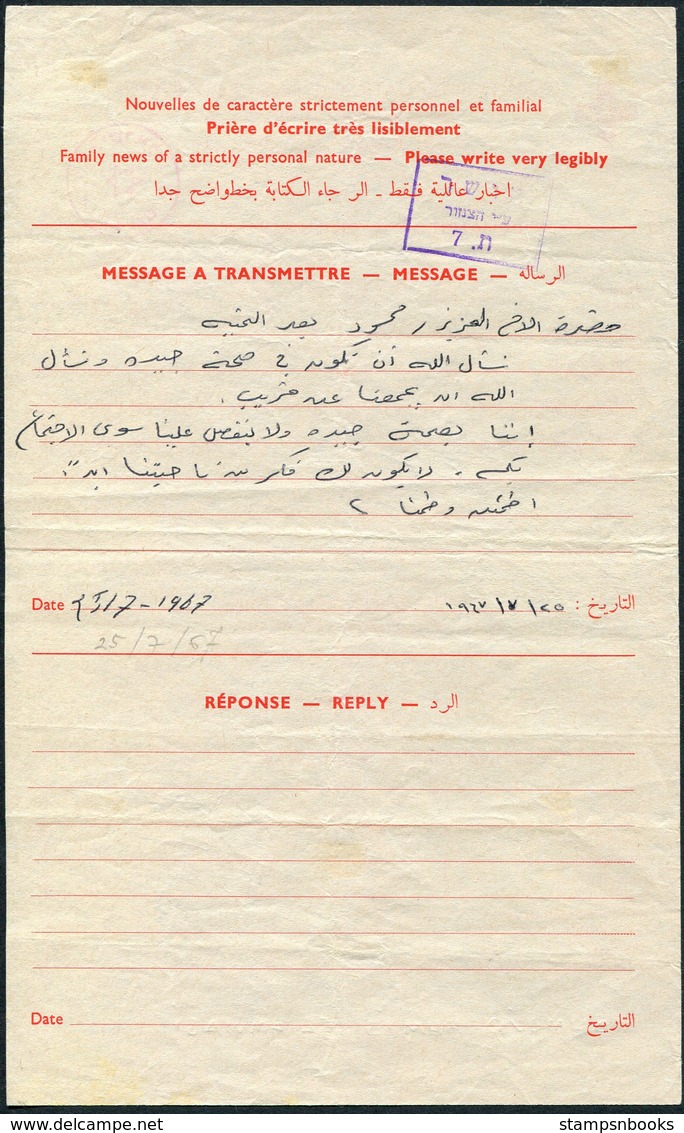 Nouvelles de caractère strictement personnel et familial
Prière d'écrire très lisiblement
Family news of a strictly personal nature — Please write very legibly
اخبار عائلية فقط ـ الرجاء الكتابة بخط واضح جدا
ע"י הצנזור
ת. 7
MESSAGE A TRANSMETTRE — MESSAGE — الرسالة
حضرة الاخ العزيز محمود بعد التحية
نسأل الله أن تكون في صحة جيده ونسأل
الله ان يجمعنا عن قريب.
إننا بصحة جيده ولا ينقص علينا سوى الاجتماع
بكم. لا يكون لك فكر من ناحيتنا ابداً
اطمئن وطمنا
Date 25/7-1967
التاريخ : ١٩٦٧/٧/٢٥
25/7/67
RÉPONSE — REPLY — الرد
Date
التاريخ
stampsnbooks